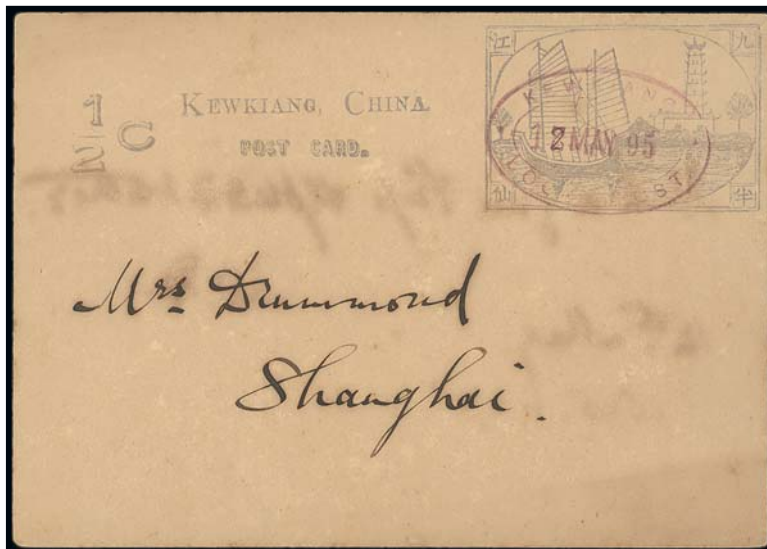 江 九
1/2 C
KEWKIANG, CHINA
POST CARD.
KEWKIANG
12 MAY 95
LOCAL POST
仙 半
Mrs Drummond
Shanghai.